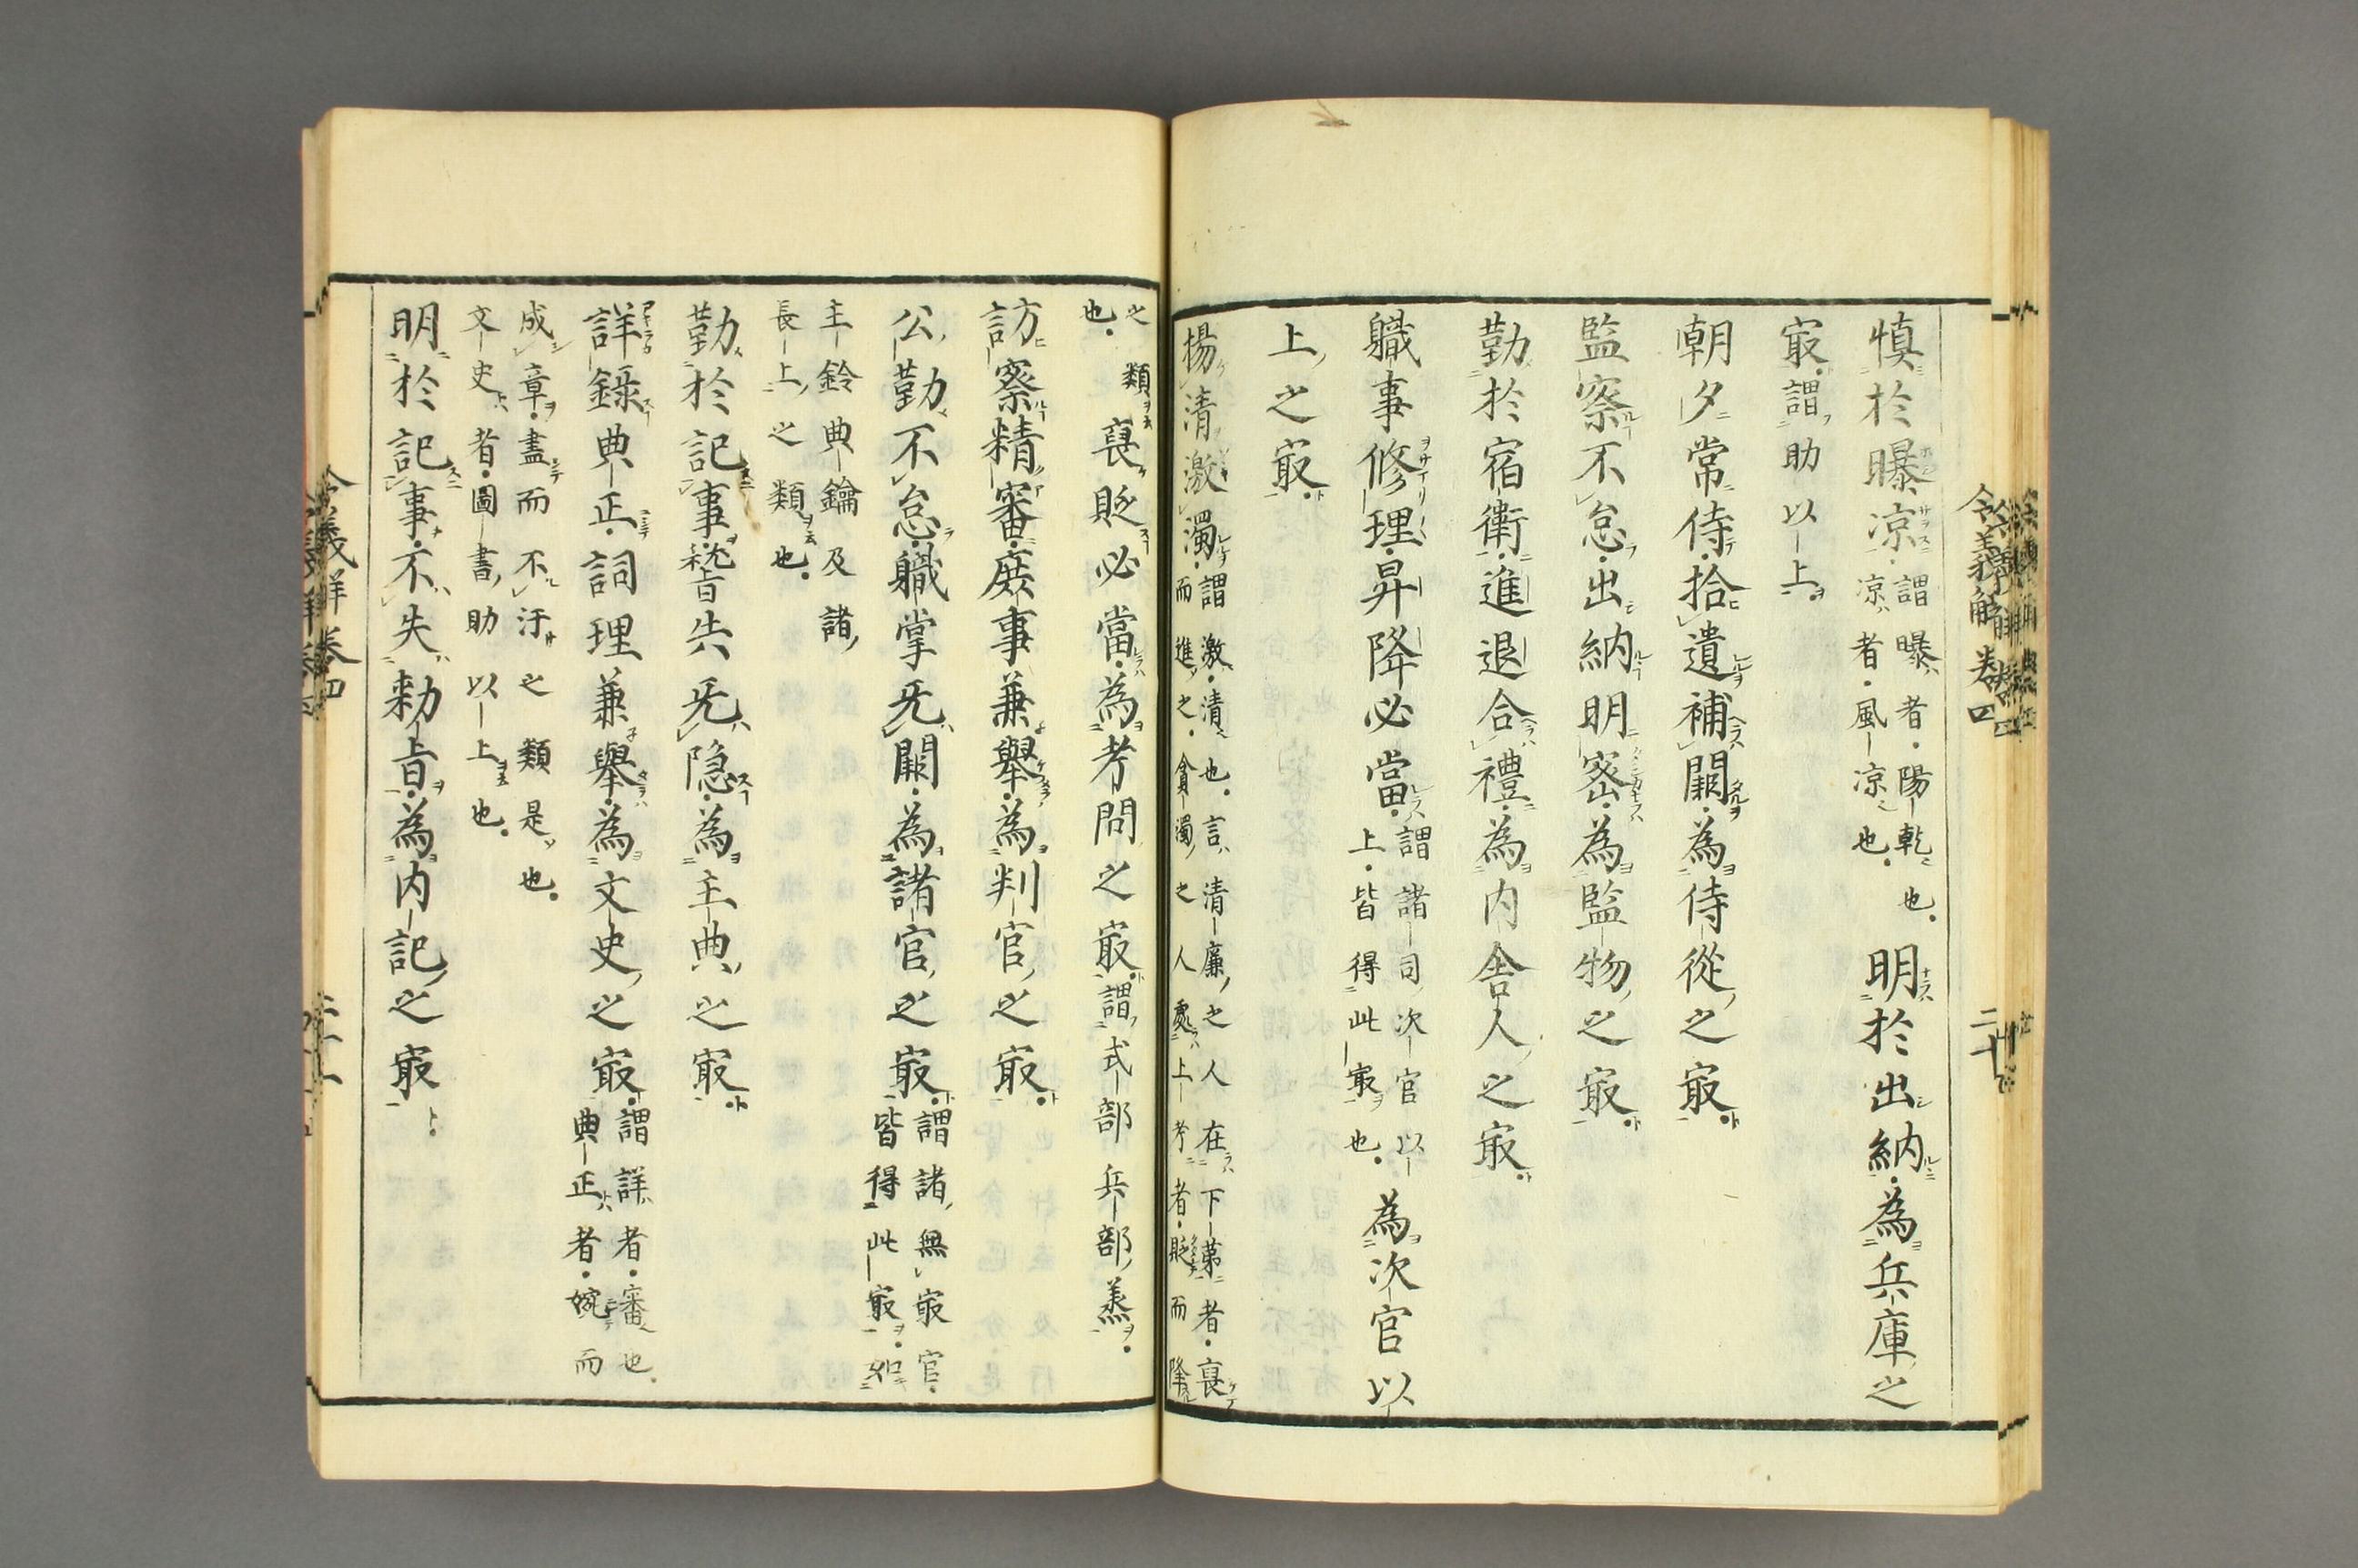 慎於曝凉謂曝者陽乾也凉者風凉也明於出納為兵庫之
㝡謂助以上
朝夕常侍拾遺補闕為侍從之㝡
監察不怠出納明密為監物之㝡
勤於宿衛進退合禮為内舎人之㝡
職事修理昇降必當謂諸司次官以上皆得此㝡也為次官以
上之㝡
揚清激濁謂激清也言清廉之人在下第者褒而進之貪濁之人處上考者貶而降
之類也褒貶必當為考問之㝡謂式部兵部蒸
訪察精審庶事兼舉為判官之㝡
公勤不怠職掌无闕為諸官之㝡謂諸無㝡官皆得此㝡
主鈴典鑰及諸長上之類也
勤於記事稽失无隐為主典之㝡
詳錄典正詞理兼舉為文史之㝡謂詳者審也典正者婉而
成章盡而不汙之類是也文史者圖書助以上也
明於記事不失勅旨為内記之㝡
令義解卷四
二十
令義解卷四